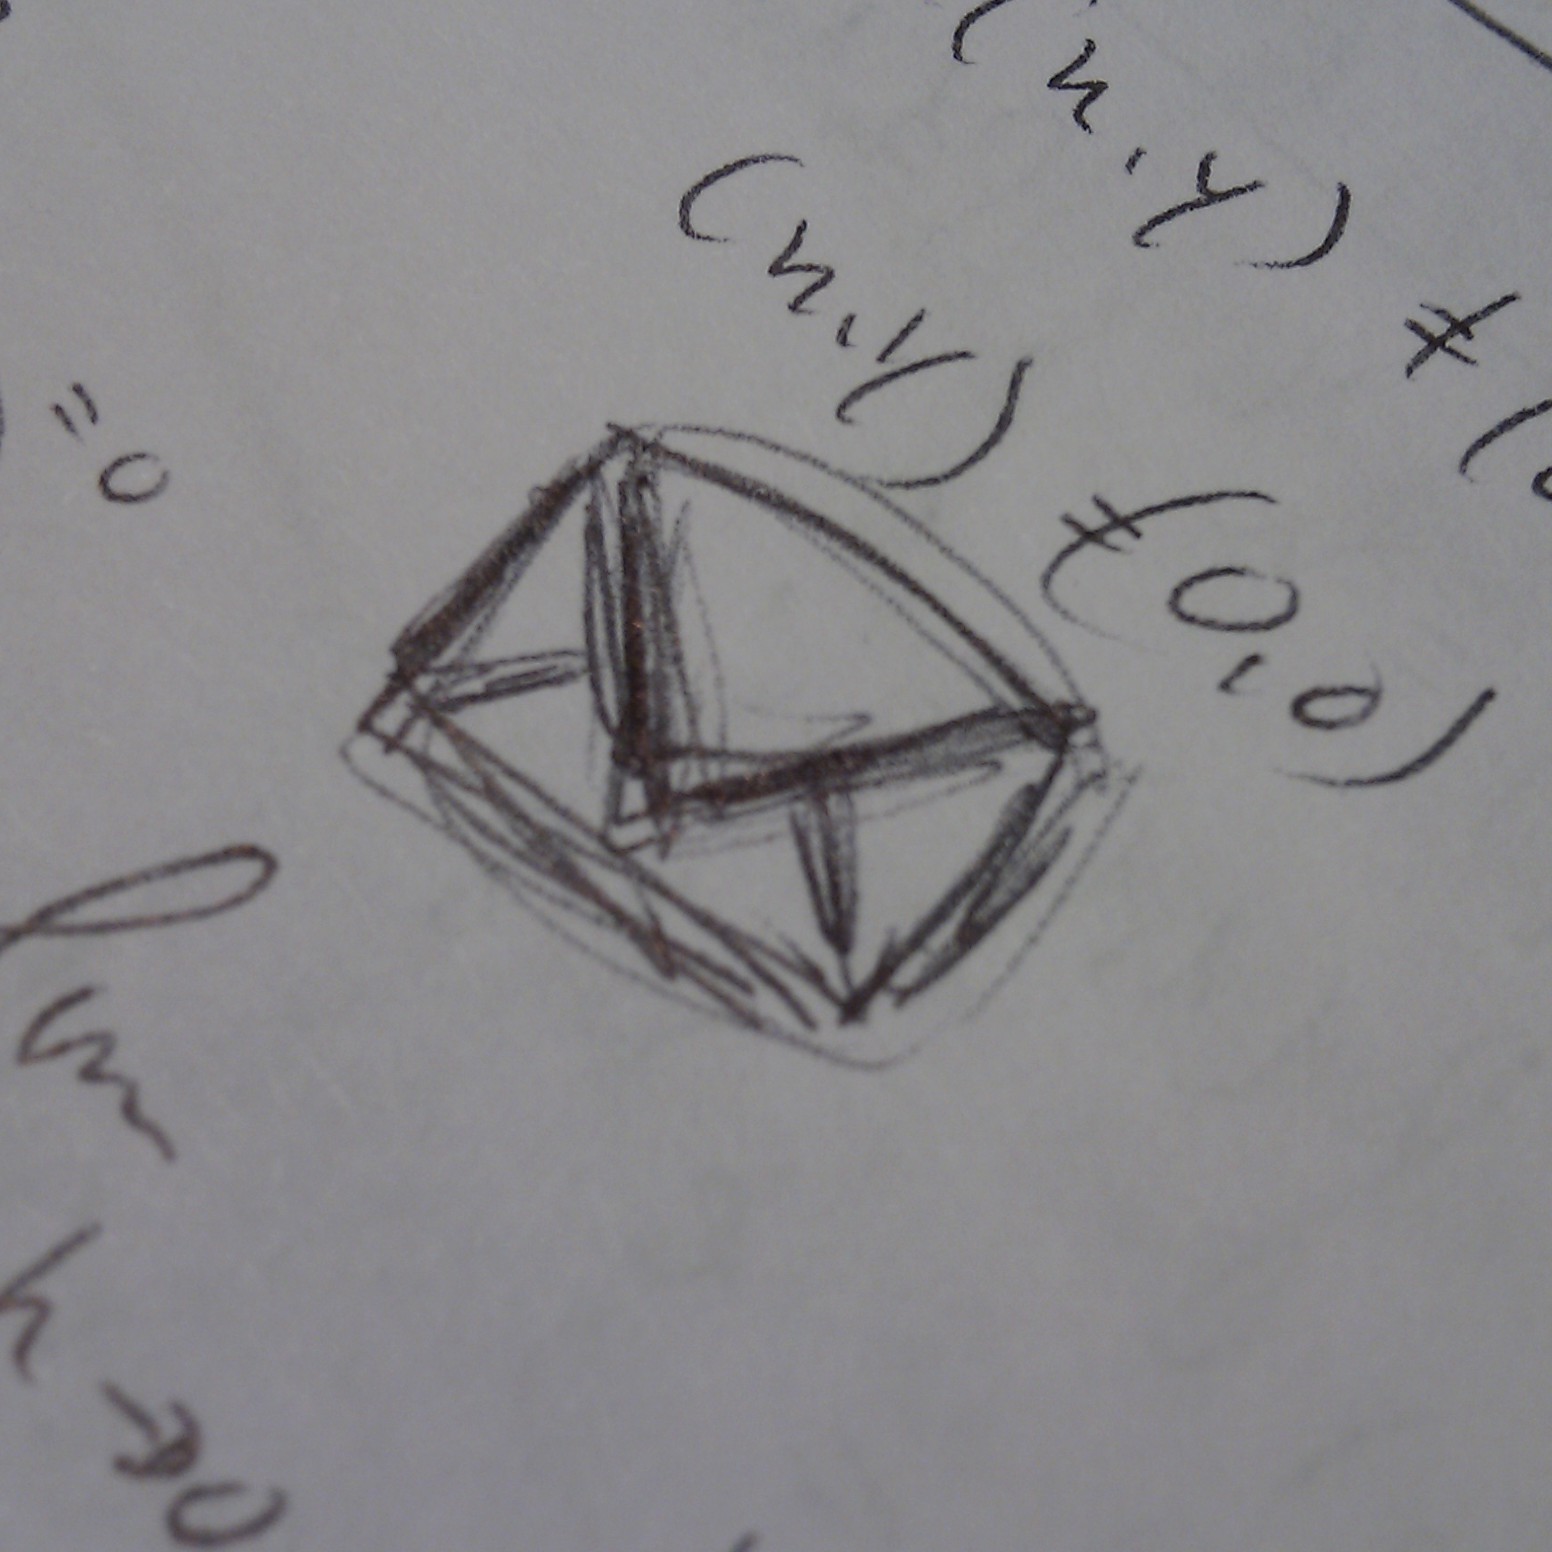 (x,y) ≠ (
(x,y) ≠ (0,0)
=0
lim
h→0